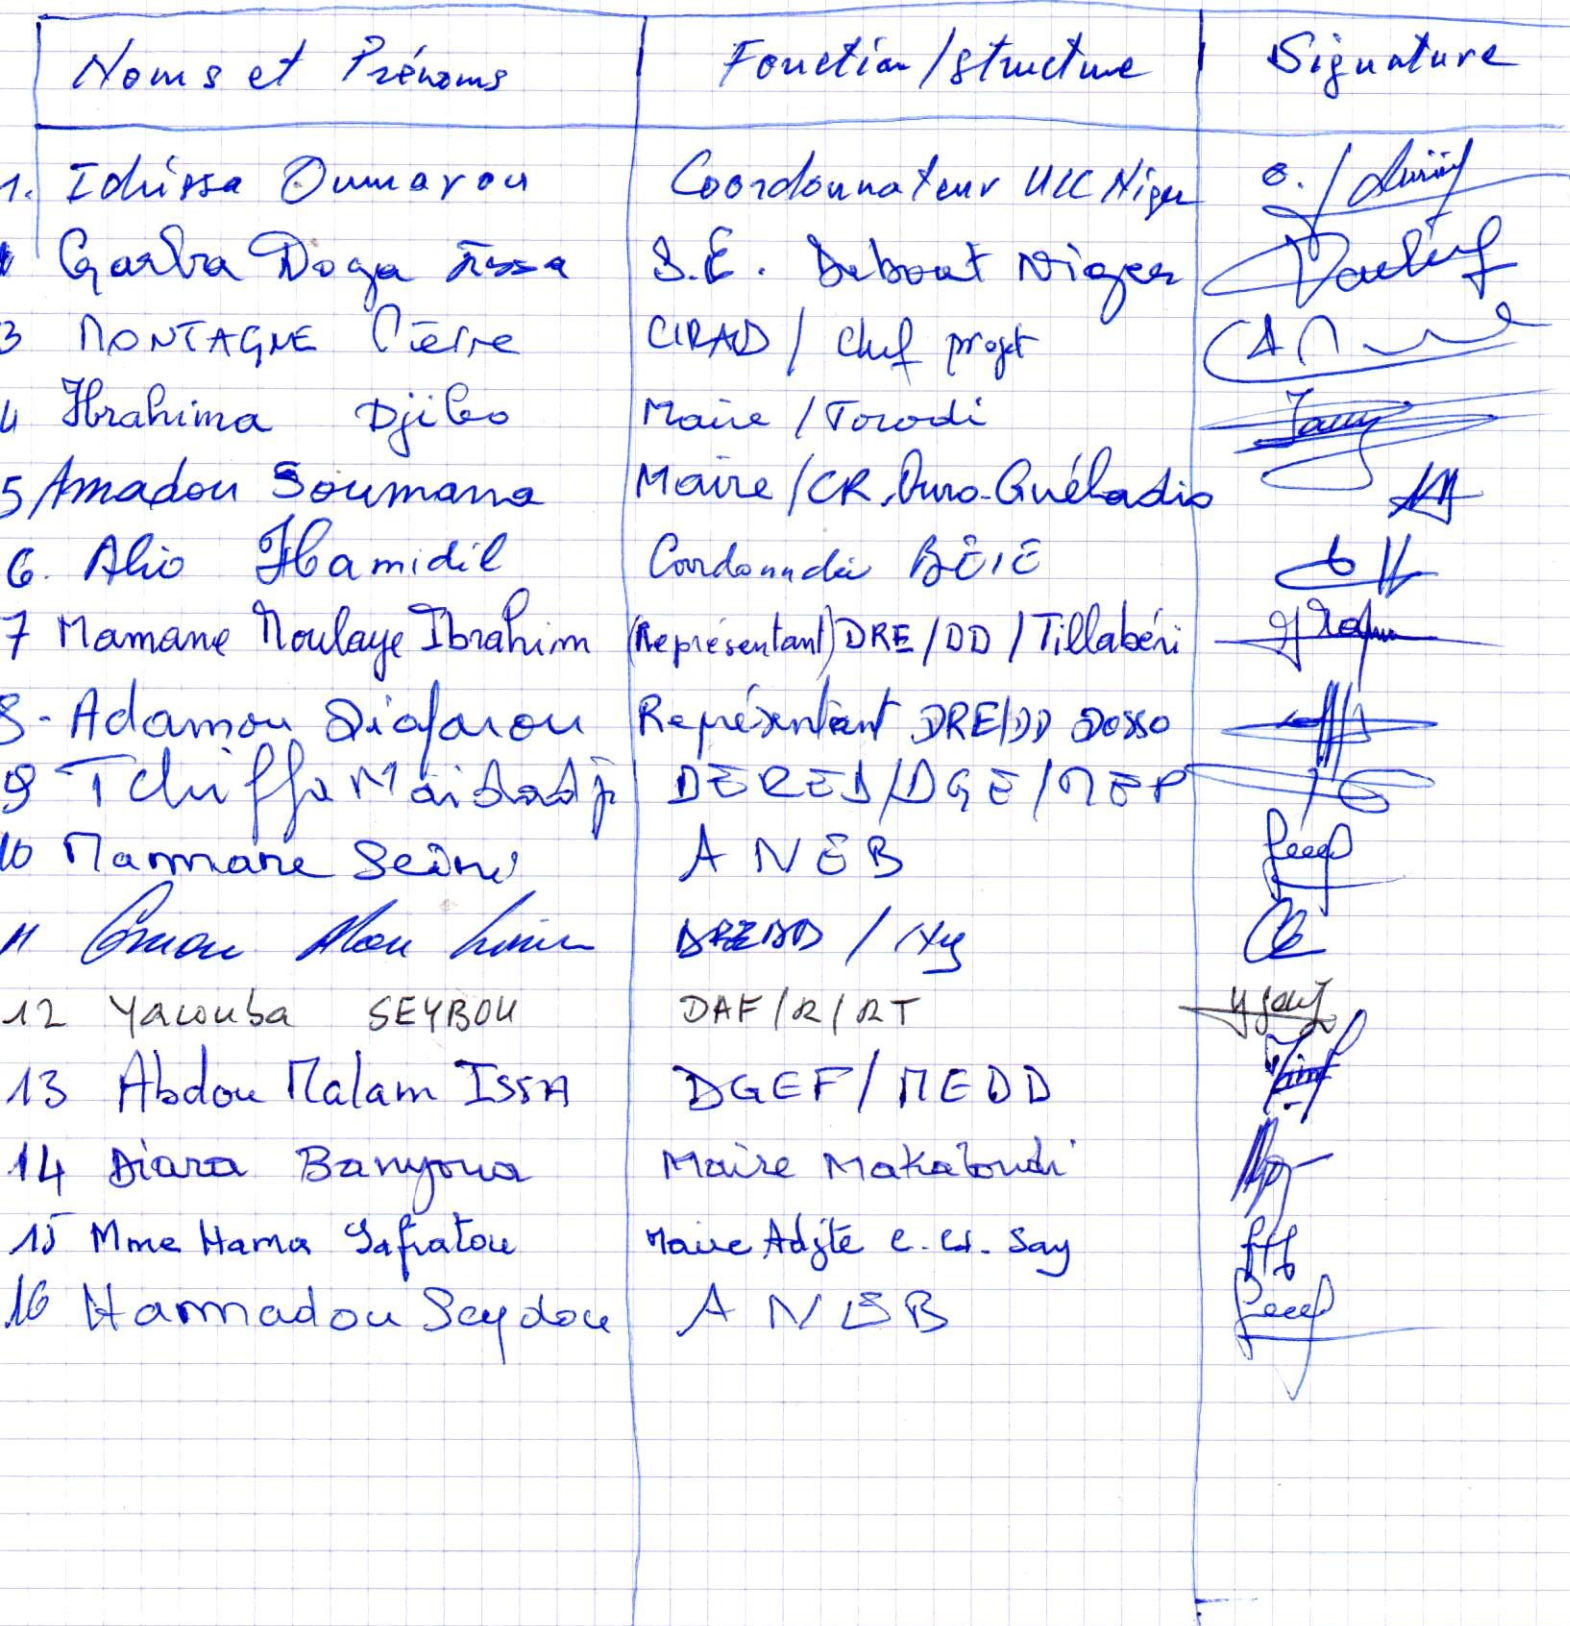 Noms et Prénoms Fonction/structure Signature
1. Idrissa Oumarou Coordonnateur UCC Niger
Garba Doga Issa S.E. Debout Niger
3 MONTAGNE Pierre CIRAD / Chef projet
4 Ibrahima Djibo Maire / Torodi
5 Amadou Soumana Maire / CR. Ouro-Guéladio
6. Alio Hamidil BEIE
7 Mamane Moulaye Ibrahim (Représentant) DRE/DD / Tillabéri
8 - Adamou Diafarou Représentant DRE/DD Dosso
9 Tchiffa DERED/DGE/MEP
10 Mammane Seini ANEB
11
12 Yacouba SEYBOU DAF/R/RT
13 Abdou Malam ISSA DGEF/MEDD
14 Diara Banyoua Maire Makalondi
15 Mme Hama Safiatou Maire Adjte Say
16 Hammadou Seydou ANEB